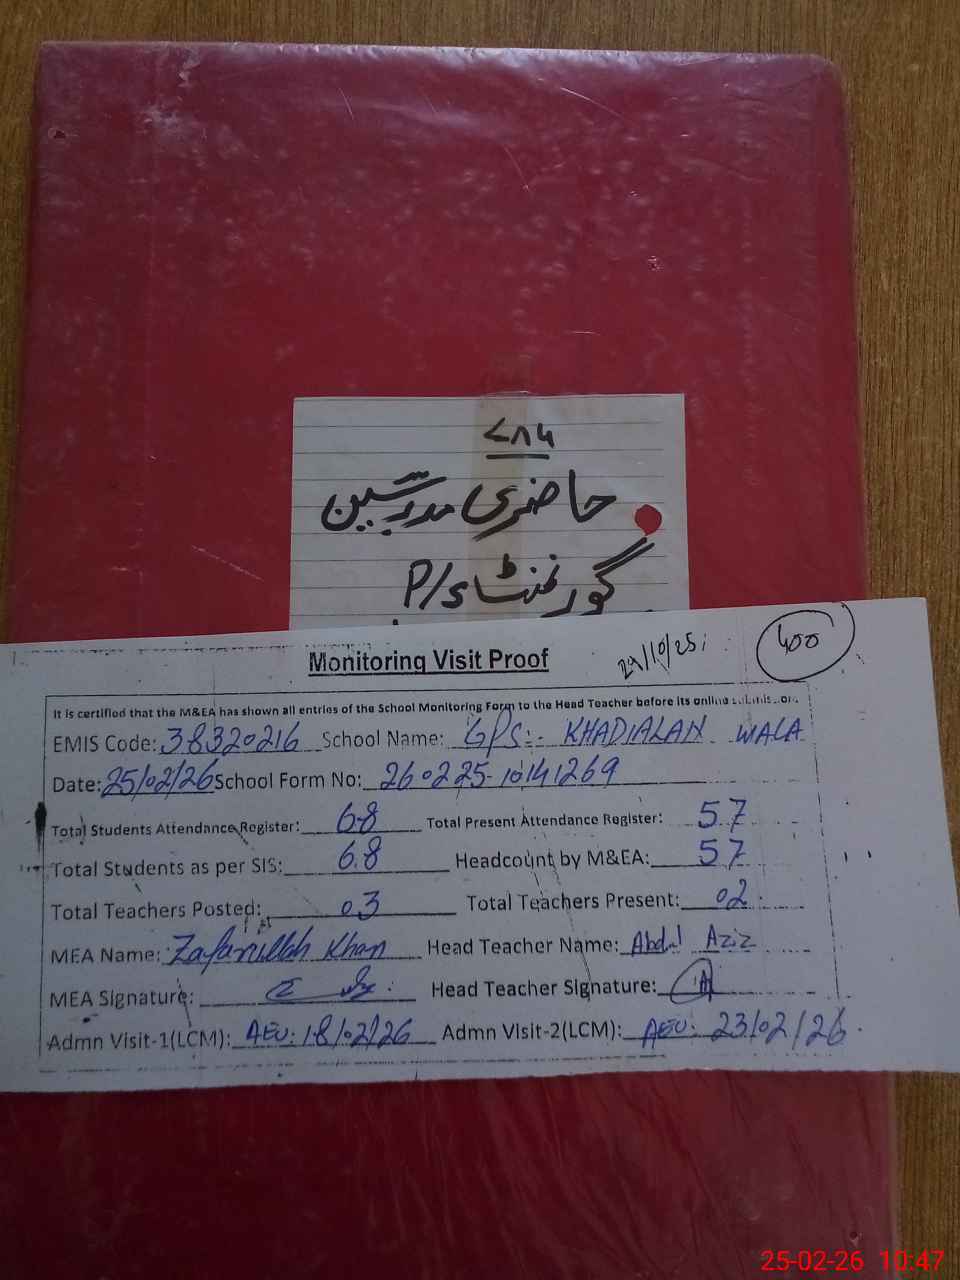 ۷۸۶
حاضری مدرسین
گورنمنٹ P/S
Monitoring Visit Proof
29/10/25
400
It is certified that the M&EA has shown all entries of the School Monitoring Form to the Head Teacher before its online submission.
EMIS Code: 38320216 School Name: GPS:- KHADIALAN WALA
Date: 25/02/26 School Form No: 260225-10141269
Total Students Attendance Register: 68 Total Present Attendance Register: 57
Total Students as per SIS: 68 Headcount by M&EA: 57
Total Teachers Posted: 03 Total Teachers Present: 02
MEA Name: Zafarullah Khan Head Teacher Name: Abdul Aziz
MEA Signature: Head Teacher Signature:
Admn Visit-1(LCM): AEO: 18/02/26 Admn Visit-2(LCM): AEO: 23/02/26.
25-02-26 10:47